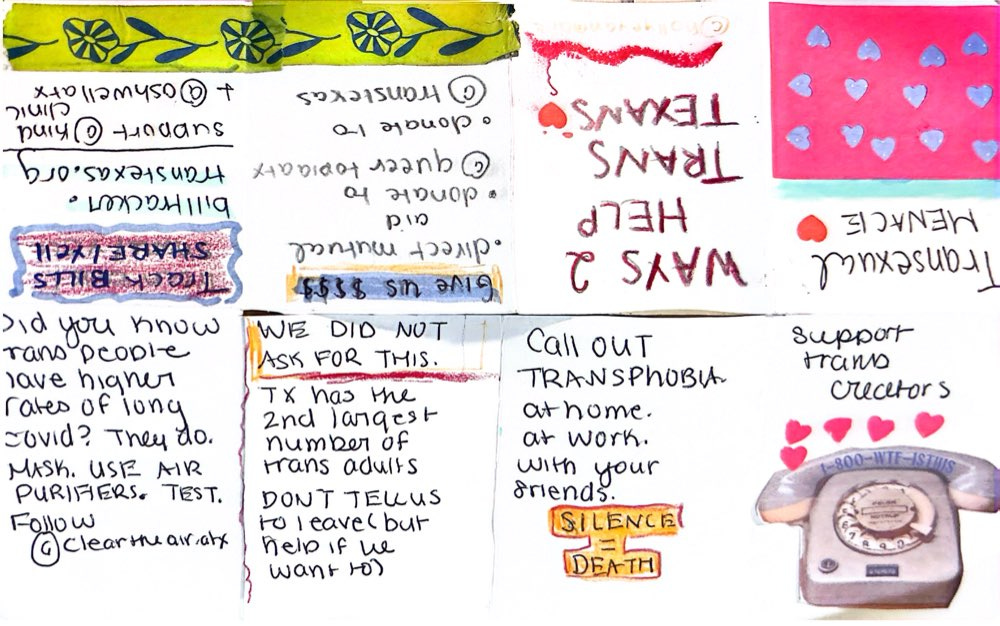 WAYS 2
HELP
TRANS
TEXANS
Give us $$$$
• direct mutual
aid
• donate to
@ queertopiaatx
• donate to
@ transtexas
Track BILLS
SHARE/Yell
billtracker.
transtexas.org
support @ kind
clinic
+ @ ashwellatx
Did you know
rans people
have higher
rates of long
covid? They do.
MASK. USE AIR
PURIFIERS. TEST.
Follow
@ cleartheair.atx
WE DID NOT
ASK FOR THIS.
TX has the
2nd largest
number of
trans adults
DONT TELL US
to leave (but
help if we
want to)
Call OUT
TRANSPHOBIA
at home.
at work.
with your
friends.
SILENCE
=
DEATH
support
trans
creators
1-800-WTF-ISTHIS
Transexual
MENACE